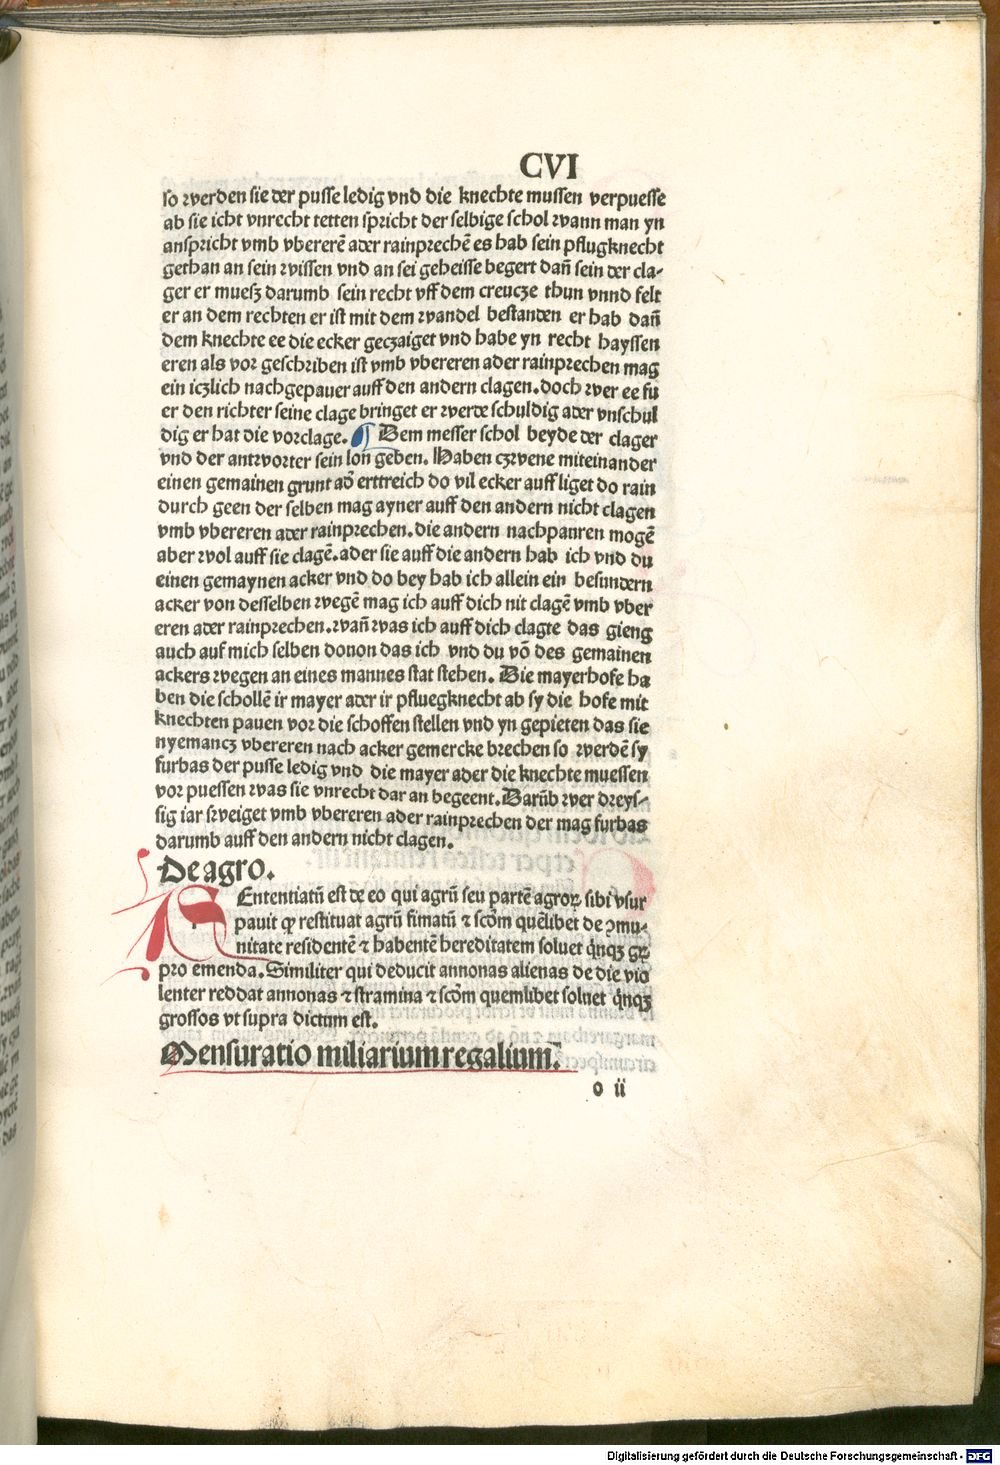 CVI
so werden sie der pusse ledig vnd die knechte mussen verpuesse
ab sie icht vnrecht tetten spricht der selbige schol wann man yn
anspricht vmb vbererē ader rainprechē es hab sein pflugknecht
gethan an sein wissen vnd an sei geheisse begert dañ sein der cla-
ger er muesz darumb sein recht vff dem creucze thun vnnd felt
er an dem rechten er ist mit dem wandel bestanden er hab dañ
dem knechte ee die ecker geczaiget vnd habe yn recht hayssen
eren als vor geschriben ist vmb vbereren ader rainprechen mag
ein iczlich nachgepauer auff den andern clagen. doch wer ee fu
er den richter seine clage bringet er werde schuldig ader vnschul
dig er hat die vorclage. ¶ Dem messer schol beyde der clager
vnd der antworter sein lon geben. Haben czwene miteinander
einen gemainen grunt aď erttreich do vil ecker auff liget do rain
durch geen der selben mag ayner auff den andern nicht clagen
vmb vbereren ader rainprechen. die andern nachpauren mogē
aber wol auff sie clagē. ader sie auff die andern hab ich vnd du
einen gemaynen acker vnd do bey hab ich allein ein besundern
acker von desselben wegē mag ich auff dich nit clagē vmb vber
eren ader rainprechen. wañ was ich auff dich clagte das gieng
auch auf mich selben donon das ich vnd du vō des gemainen
ackers wegen an eines mannes stat stehen. Die mayerhofe ha
ben die schollē ir mayer ader ir pfluegknecht ab sy die hofe mit
knechten pauen vor die schoffen stellen vnd yn gepieten das sie
nyemancz vbereren nach acker gemercke brechen so werdē sy
furbas der pusse ledig vnd die mayer ader die knechte muessen
vor puessen was sie vnrecht dar an begeent. Darūb wer dreys-
sig iar sweiget vmb vbereren ader rainprechen der mag furbas
darumb auff den andern nicht clagen.
De agro.
SEntentiatū est de eo qui agrū seu partē agroꝝ sibi vsur
pauit qꝫ restituat agrū fimatū ⁊ scōm quēlibet de ꝯmu-
nitate residentē ⁊ habentē hereditatem soluet q̄nqꝫ gꝝ
pro emenda. Similiter qui deducit annonas alienas de die vio
lenter reddat annonas ⁊ stramina ⁊ scōm quemlibet soluet q̄nqꝫ
grossos vt supra dictum est.
Mensuratio miliarium regalium.
o ii
Digitalisierung gefördert durch die Deutsche Forschungsgemeinschaft - DFG